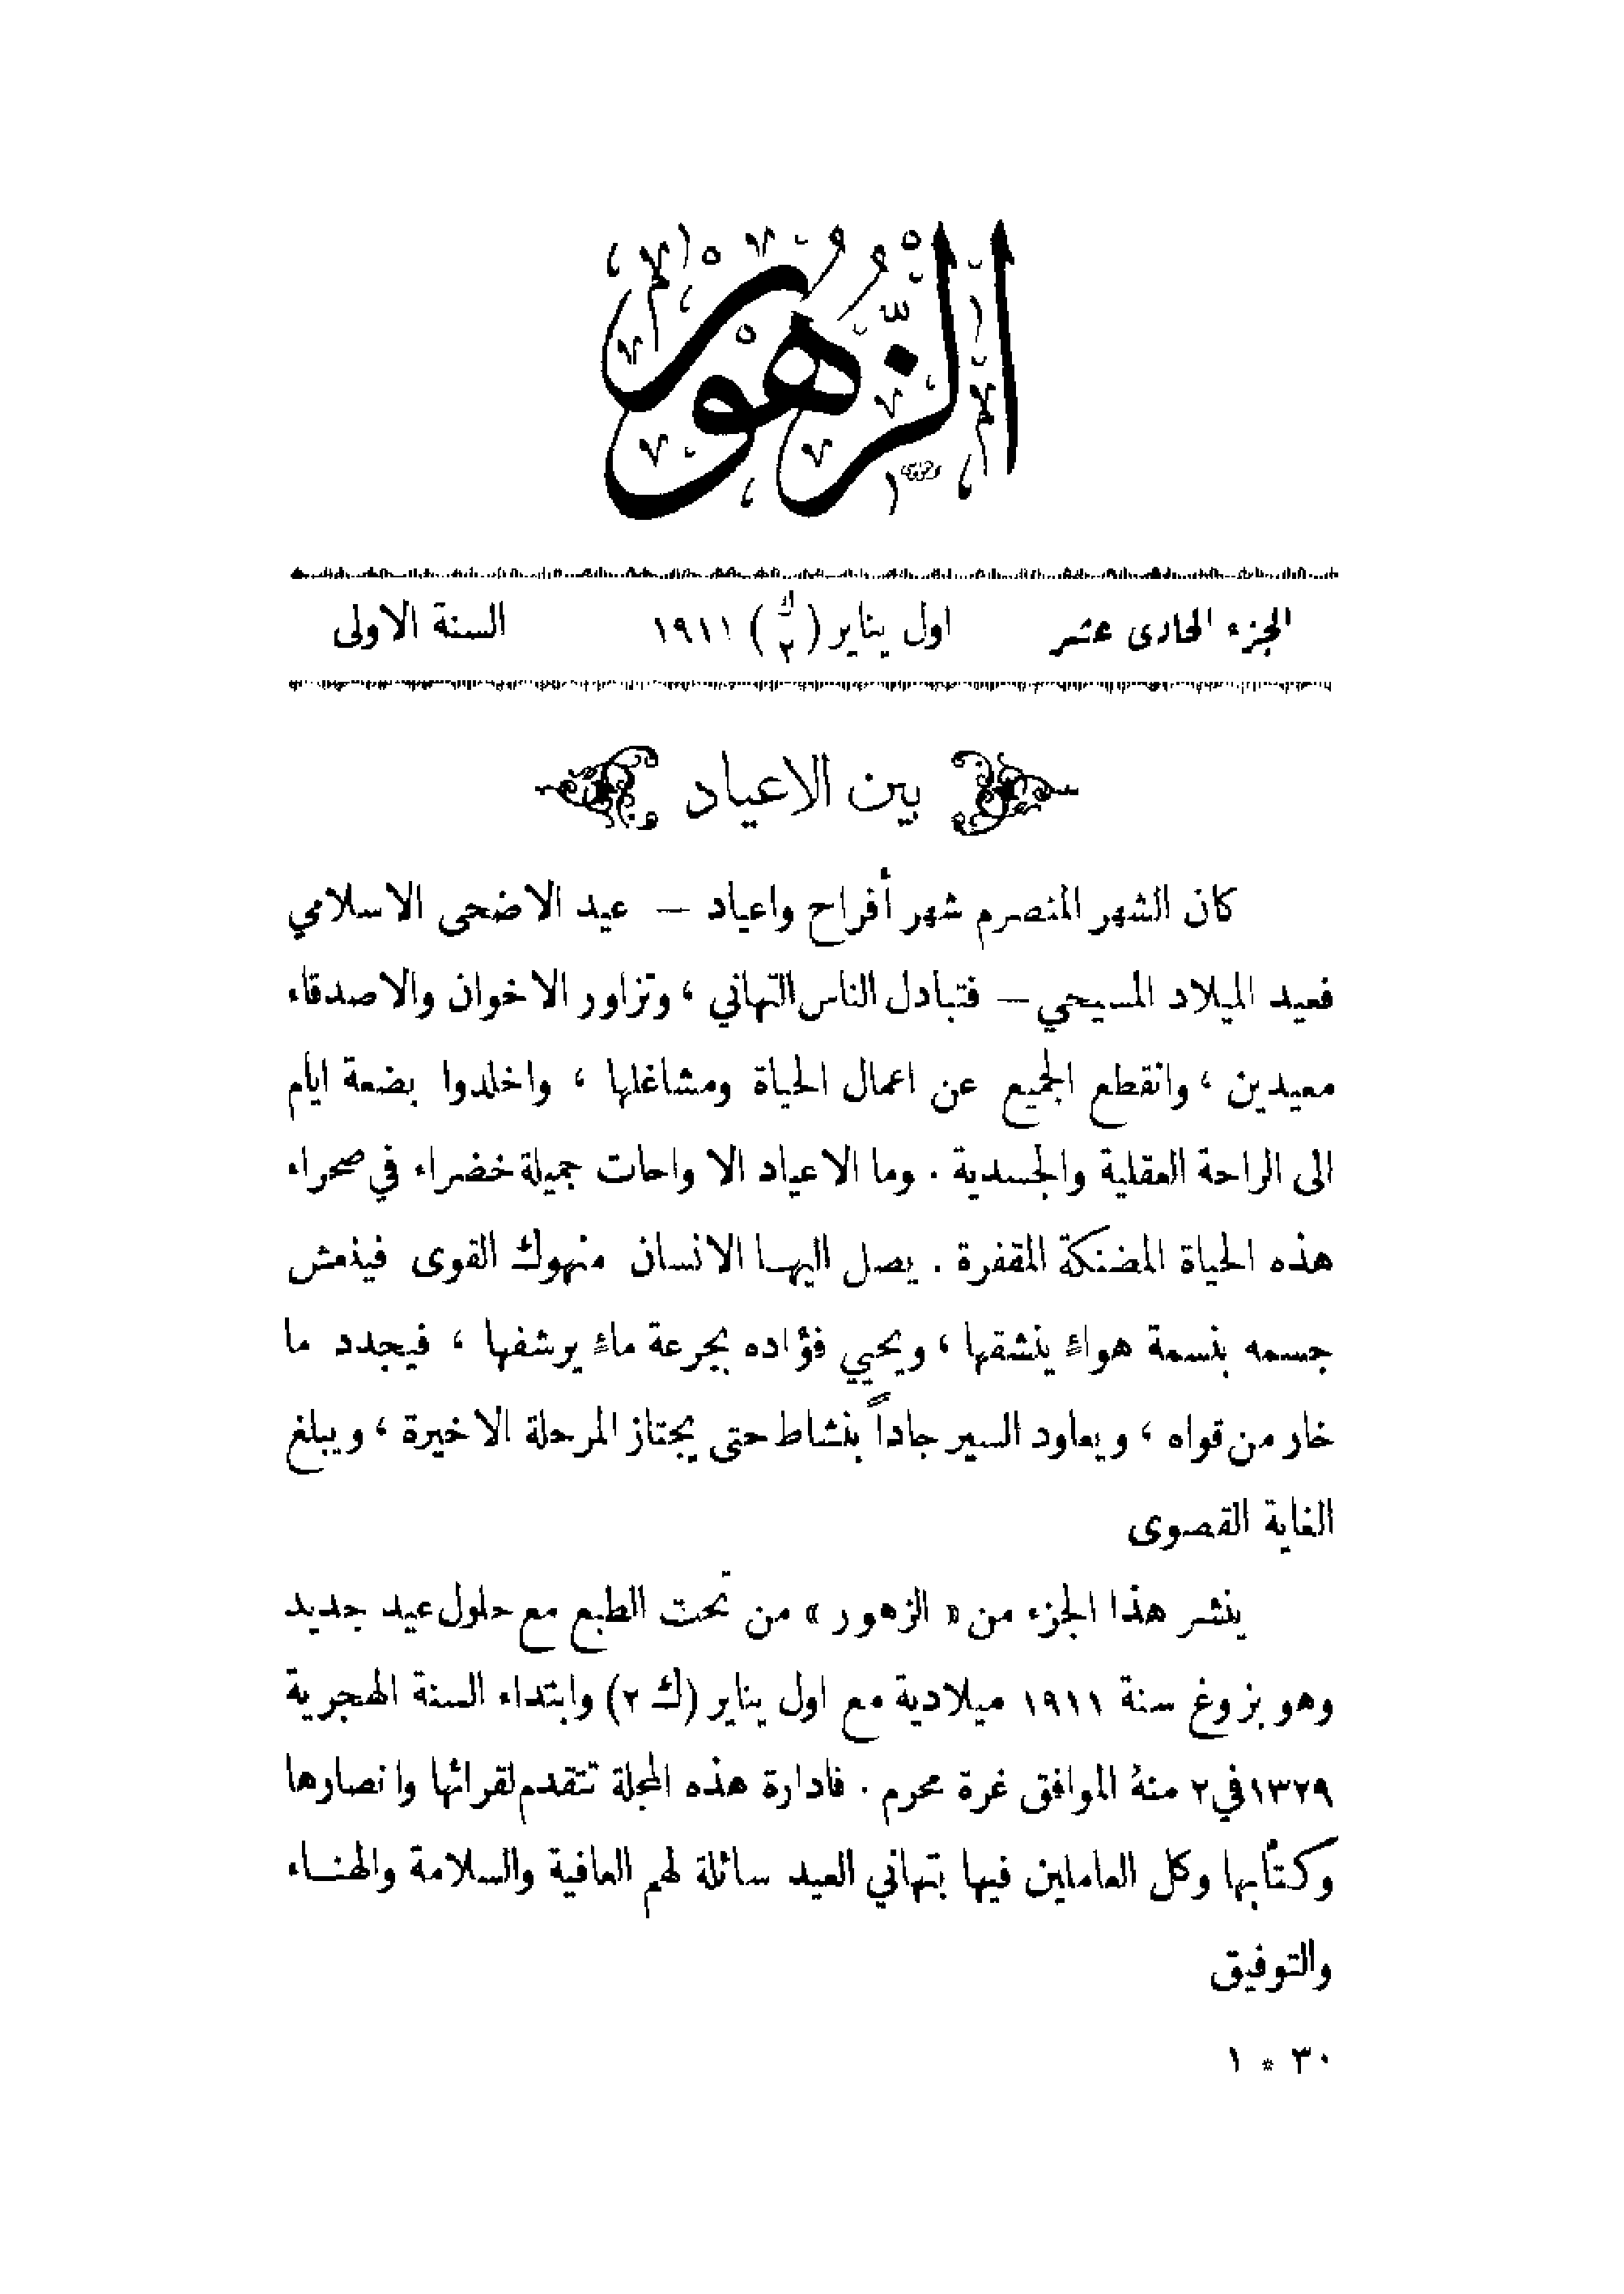 الزهور
الجزء الحادى عشر اول يناير (ك ٢) ١٩١١ السنة الاولى
بين الاعياد
كان الشهر المنصرم شهر أفراح واعياد — عيد الاضحى الاسلامي
فعيد الميلاد المسيحي — فتبادل الناس التهاني ، وتزاور الاخوان والاصدقاء
معيدين ، وانقطع الجميع عن اعمال الحياة ومشاغلها ، واخلدوا بضعة ايام
الى الراحة العقلية والجسدية . وما الاعياد الا واحات جميلة خضراء في صحراء
هذه الحياة المضنكة المقفرة . يصل اليها الانسان منهوك القوى فينعش
جسمه بنسمة هواءٍ ينشقها ، ويحيي فؤاده بجرعة ماءٍ يرشفها ، فيجدد ما
خار من قواه ، ويعاود السير جاداً بنشاط حتى يجتاز المرحلة الاخيرة ، ويبلغ
الغاية القصوى
ينشر هذا الجزء من « الزهور » من تحت الطبع مع حلول عيد جديد
وهو بزوغ سنة ١٩١١ ميلادية مع اول يناير (ك ٢) وابتداء السنة الهجرية
١٣٢٩ في ٢ منهُ الموافق غرة محرم . فادارة هذه المجلة تتقدم لقرائها وانصارها
وكتّابها وكل العاملين فيها بتهاني العيد سائلة لهم العافية والسلامة والهناء
والتوفيق
٣٠ * ١